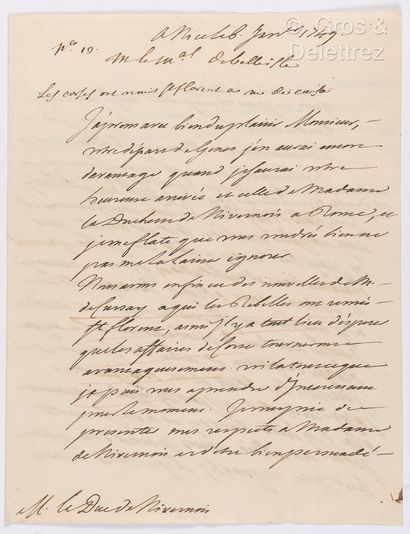 © Gros &
Delettrez
a Nice le 6. Janv. 1749
N.º 19.
M le M.al de belleisle
Les corses ont remis St florent a M de Cursai
J'aprens avec bien du plaisir Monsieur,
votre départ de Genes j'en aurai encore
davantage quand je sçaurai votre
heureuse arrivée et celle de Madame
la Duchesse de Nivernois a Rome, et
je me flate que vous voudrés bien ne
pas me la laisser ignorer
Nous avons enfin eu des nouvelles de M.
de Cursay a qui les Rebelles ont remis
St florent, ainsi il y a tout lieu d'esperer
que les affaires de Corse tourneront
avantageusement voila tout ce que
je puis vous aprendre d'interessant
pour le moment. Je vous prie de
presenter mes respects a Madame
de Nivernois et d'etre bien persuadé
M. le Duc de Nivernois